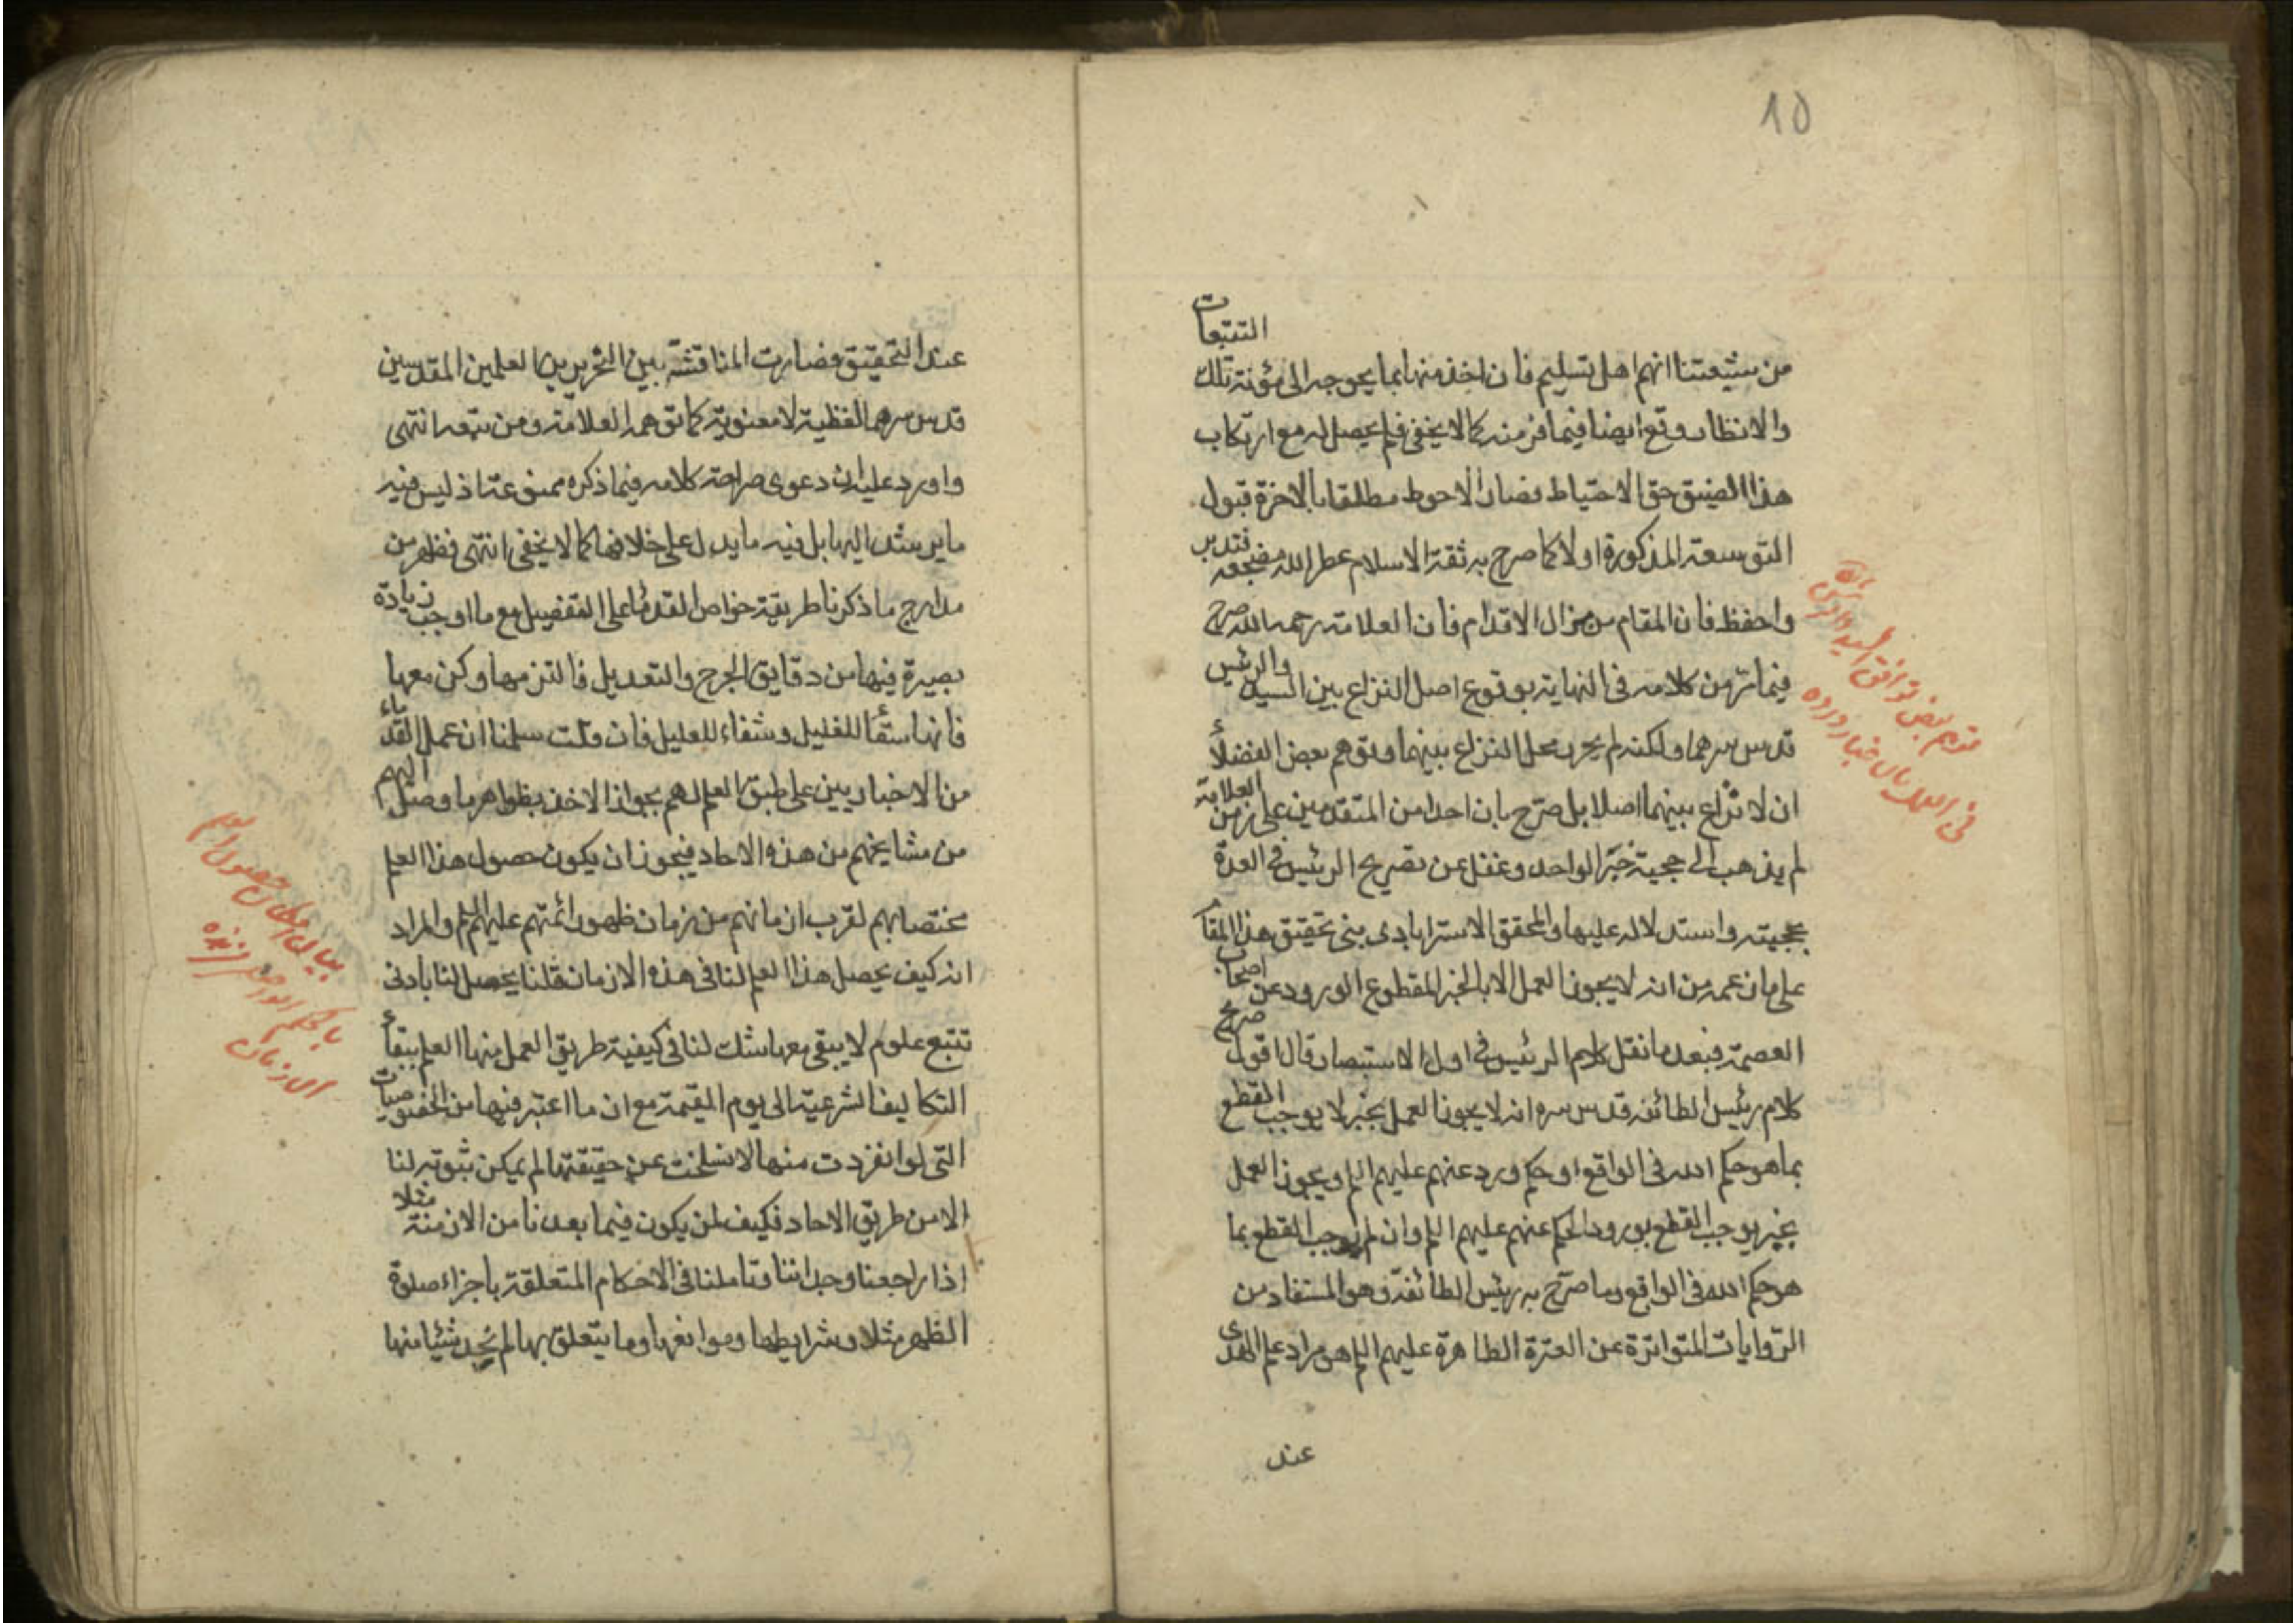 10
من شيعتنا انهم اهل تسليم فان اخذ منها بما يحوجه الى مؤنة تلك التتبعات
والانظار وقع ايضا فيما فر منه كما لا يخفى فلم يحصل له مع ارتكاب
هذا الضيق حق الاحتياط فصار الاحوط مطلقا بالاخرة قبول
التوسعة المذكورة اولا كما صرح به ثقة الاسلام عطر الله مضجعه فتدبر
واحفظ فان المقام من مزال الاقدام فان العلامة رحمه الله صرح
فيما مر من كلامه فى النهاية بوقوع اصل النزاع بين السيد والرئيس
قدس سرهما ولكنه لم يحرر محل النزاع بينهما وتوهم بعض الفضلاء
ان لا نزاع بينهما اصلا بل صرح بان احدا من المتقدمين على زمن العلامة
لم يذهب الى حجية خبر الواحد وغفل عن تصريح الرئيس فى العدة
بحجيته واستدلاله عليها والمحقق الاسترابادى بنى تحقيق هذا المقام
على ما زعمه من انه لا يجوز العمل الا بالخبر المقطوع الورود عن اصحاب
العصمة فبعد ما نقل كلام الرئيس فى اول الاستبصار قال اقول صريح
كلام رئيس الطائفة قدس سره انه لا يجوز العمل بخبر لا يوجب القطع
بما هو حكم الله فى الواقع او حكم ورد عنهم عليهم السلم ويجوز العمل
بخبر يوجب القطع بورود الحكم عنهم عليهم السلم وان لم يوجب القطع بما
هو حكم الله فى الواقع وما صرح به رئيس الطائفة وهو المستفاد من
الروايات المتواترة عن العترة الطاهرة عليهم السلم هو مراد علم الهدى
عند
عند التحقيق فصارت المناقشة بين النحريرين العلمين المقدسين
قدس سرهما لفظية لا معنوية كما توهمه العلامة ومن تبعه انتهى
واورد عليه ان دعوى صراحة كلامه فيما ذكره ممنوعة اذ ليس فيه
ما يرشد اليها بل فيه ما يدل على خلافها كما لا يخفى انتهى فظهر من
مدارج ما ذكرنا طريقة خواص القدماء على التفصيل مع ما اوجب زيادة
بصيرة فيها من دقايق الجرح والتعديل فالتزمها وكن معها
فانها سقاء للغليل وشفاء للعليل فان قلت سلمنا ان عمل القدماء
من الاخباريين على طبق العلم لهم بجواز الاخذ بظواهر ما وصل اليهم
من مشايخهم من هذه الاحاد فيجوز ان يكون حصول هذا العلم
مختصا بهم لقرب ازمانهم من زمان ظهور ائمتهم عليهم السلم والمراد
انه كيف يحصل هذا العلم لنا فى هذه الازمان قلنا يحصل لنا بادنى
تتبع علوم لا يبقى معها شك لنا فى كيفية طريق العمل منها العلم ببقاء
التكاليف الشرعية الى يوم القيمة مع ان ما اعتبر فيها من الخصوصيات
التى لو انفردت منها لانسلخت عن حقيقتها لم يمكن ثبوته لنا
الا من طريق الاحاد فكيف لمن يكون فيما بعدنا من الازمنة مثلا
اذا راجعنا وجداننا وتاملنا فى الاحكام المتعلقة باجزاء صلوة
الظهر مثلا وشرايطها وموانعها وما يتعلق بها لم نجد شيئا منها